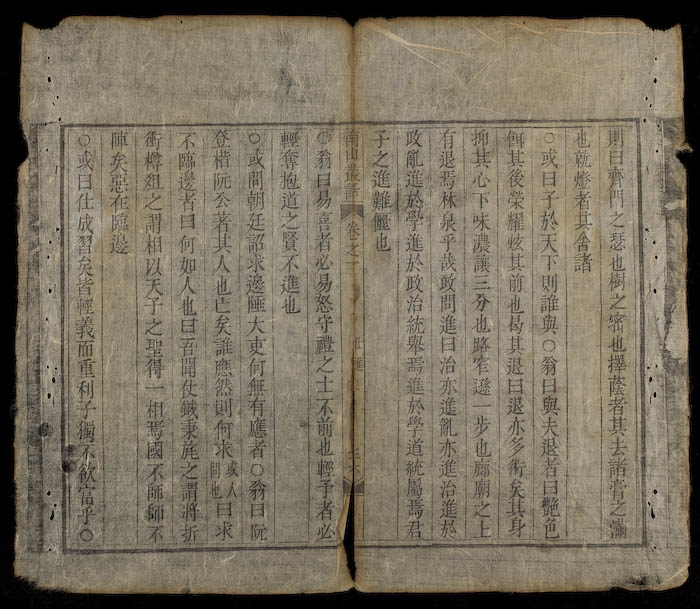 則曰齊門之瑟也樹之密也擇蔭者其去諸膏之滿
也就燈者其畬諸
○或曰子於天下則誰與○翁曰與夫退者曰艶色
餌其後榮耀炫其前也曷其退曰退亦多術矣其身
抑其心下味濃讓三分也路窄遜一步也廊廟之上
有退焉林泉乎哉敢問進曰治亦進亂亦進治進於
政亂進於學進於政治統舉焉進於學道統屬焉君
子之進難儷也
南山叢話 卷之一 仕進
○翁曰易喜者必易怒守禮之士不前也輕予者必
輕奪抱道之賢不進也
○或問朝廷詔求邊陲大吏何無有應者○翁曰阮
登楷阮公著其人也亡矣誰應然則何求或人問也曰求
不臨邊者曰何如人也曰吾聞仗鉞秉旄之謂將折
衝樽俎之謂相以天子之聖得一相焉國不師師不
陣矣惡在臨邊
○或曰仕成習矣皆輕義而重利子獨不欲富乎○